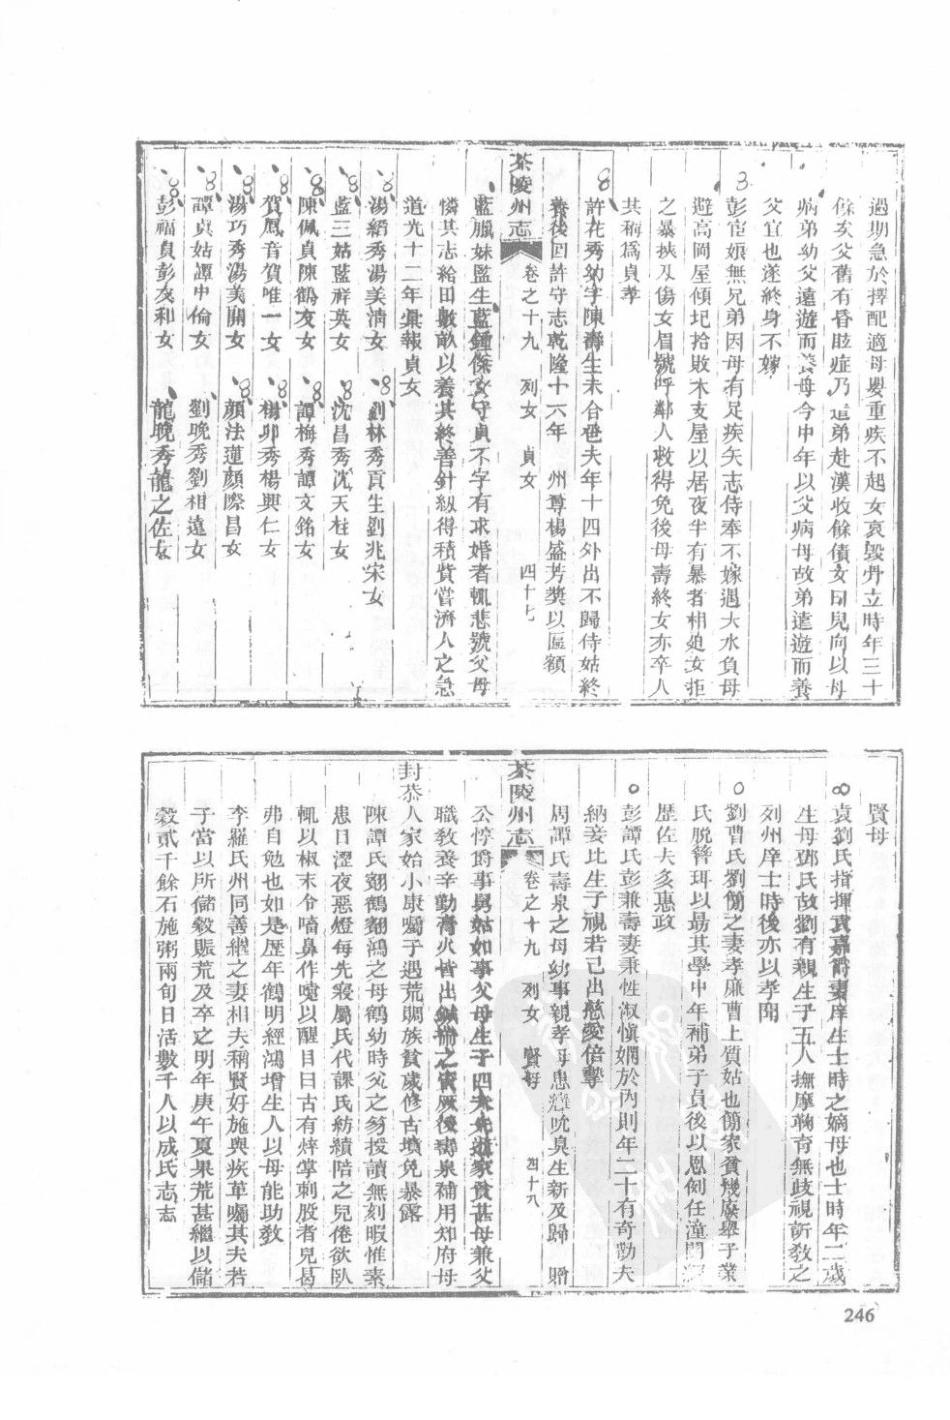 過期急於擇配適母嬰重疾不起女哀毀骨立時年三十
餘矣父舊有昏眩症乃這弟赴漢收餘債女曰兒向以母
病弟幼父遠遊而養母今中年以父病母故弟遠遊而養
父宜也遂終身不嫁
彭宦娘無兄弟因母有足疾矢志侍奉不嫁遇大水負母
避高岡屋傾圮拾敗木支屋以居夜半有暴者相廹女拒
之暴挾刄傷女眉號呼鄰人救得免後母壽終女亦卒人
其稱爲貞孝
許花秀幼字陳壽生未合卺夫年十四外出不歸侍姑終
養後回許守志乾隆十六年 州尊楊盛芳獎以區額
茶陵州志 卷之十九 列女 貞女 四十七
藍服妹監生藍鍾傑女守貞不字有求婚者輒悲號父母
憐其志給田數畝以養其終善針紉得積貲嘗濟人之急
道光十二年彙報貞女
湯紹秀湯美淸女 劉林秀貢生劉兆宋女
藍三姑藍祥英女 沈昌秀沈天柱女
陳佩貞陳鶴友女 譚梅秀譚文銘女
賀鳳音賀唯一女 楊卯秀楊興仁女
湯巧秀湯美開女 顔法蓮顔際昌女
譚貞姑譚中倫女 劉晚秀劉相遠女
彭福貞彭友和女 龍晚秀龍之佐女
賢母
袁劉氏指揮袁嘉爵妻庠生士時之嫡母也士時年二歲
生母鄧氏故劉有親生子五人撫摩鞠育無歧視訢敎之
列州庠士時後亦以孝聞
劉曹氏劉簡之妻孝廉曹上質姑也簡家貧幾廢舉子業
氏脫簪珥以勗其學中年補弟子員後以恩例任潼關
歷佐夫多惠政
彭譚氏彭兼壽妻秉性淑愼嫻於內則年二十有奇勸夫
納妾比生子視若己出慈愛倍摯
周譚氏壽泉之母幼事親孝母患癉吮臭生新及歸 贈
茶陵州志 卷之十九 列女 賢母 四十八
公惇爵事舅姑如事父母生子四夫先逝家貧甚母兼父
職敎養辛勤膏火皆出鍼黹之資厥後壽泉補用知府母
封恭人家始小康囑子遇荒賙族貧歲修古墳免暴露
陳譚氏翶鶴翶鴻之母鶴幼時父之芴授讀無刻暇惟素
患目澀夜惡燈每先寢屬氏代課氏紡績陪之兒倦欲臥
輒以椒末令嗑鼻作嚏以醒目曰古有焠掌刺股者兒曷
弗自勉也如是歷年鶴明經鴻增生人以母能助敎
李羅氏州同善繼之妻相夫稱賢好施與疾革囑其夫若
子當以所儲穀賑荒及卒之明年庚午夏果荒甚繼以儲
穀貳千餘石施粥兩旬日活數千人以成氏志志
246